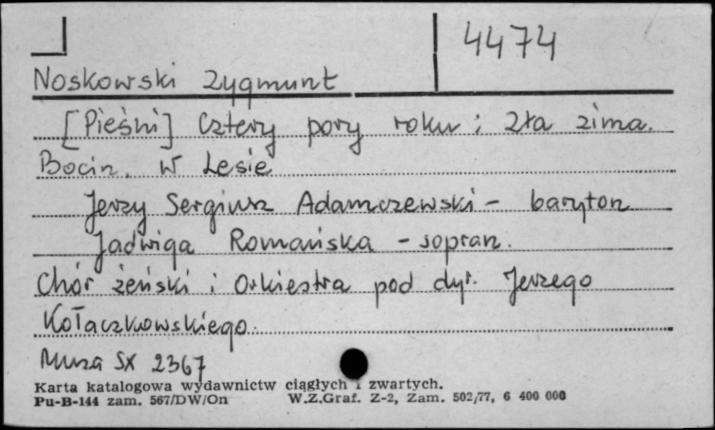 4474
Noskowski Zygmunt
[Pieśni] Cztery pory roku: Zła zima.
Bocian. W Lesie
Jerzy Sergiusz Adamczewski - baryton
Jadwiga Romańska - sopran.
Chór żeński i Orkiestra pod dyr. Jerzego
Kołaczkowskiego.
Muza SX 2367
Karta katalogowa wydawnictw ciągłych i zwartych.
Pu-B-144 zam. 567/DW/On W.Z.Graf. Z-2, Zam. 502/77, 6 400 000